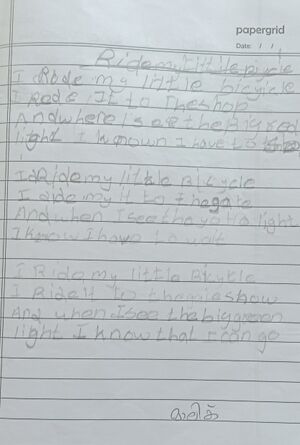 papergrid
Date: / /
Ride my little bicycle
I Rode my little bicycle
I Rode It to The shop
And where I see the big red
light I known I have to
I Ride my little Bicycle
I ride my it to the gate
And when I see the light
I know I have to wait
I Ride my little Bicycle
I Ride it to the show
And when I see the big green
light I know that I can go